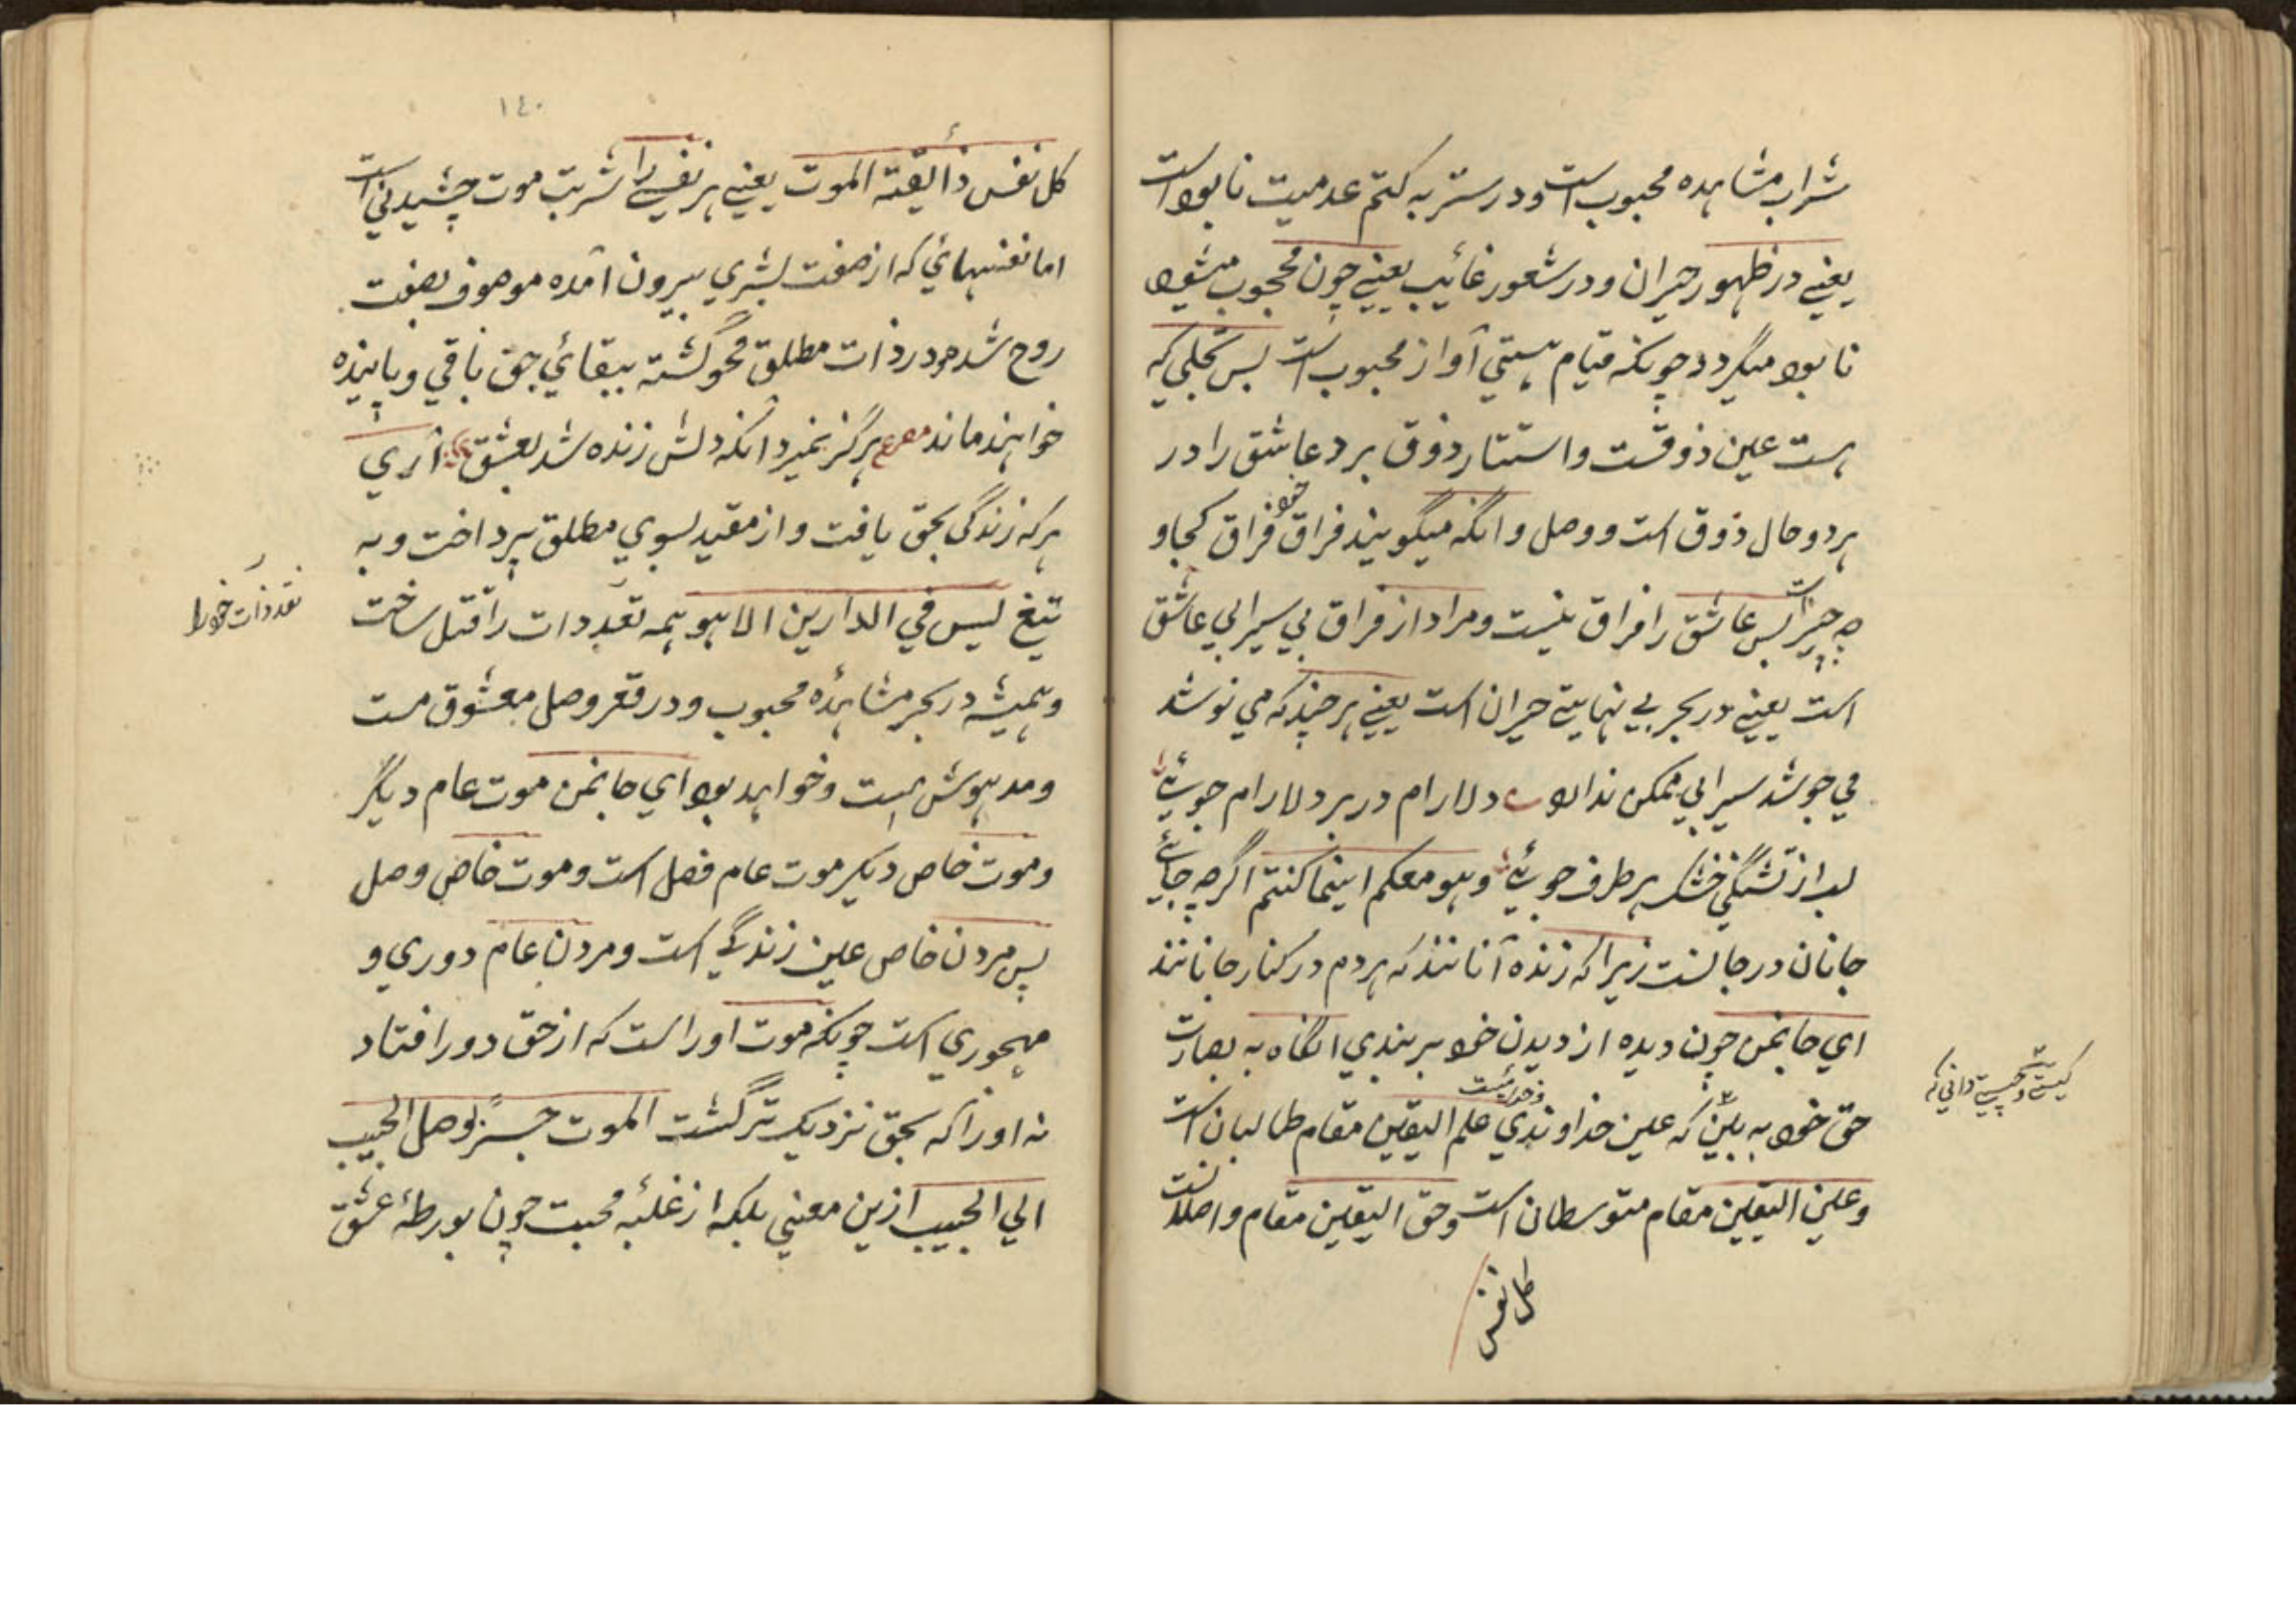 شراب مشاهده محبوب است ودرستر به کتم عدمیت نابود است
یعنے در ظهور حیران ودر شعور غائیب یعنے چون محجوب میشود
نابود میگردد چونکه قیام هستي آواز محبوب است پس تجلي که
هست عین ذوقست واستتار ذوق برد عاشق را در
هر دو حال ذوق است ووصل وانگه میگویند فراق خود فراق کجا و
چه چیز است پس عاشق را فراق نیست ومراد از فراق بي سیرابي عاشق
است یعنے در بحر بے نهایتے حیران است یعنے هر چند که مي نوشد
مي جوشد سیرابي ممکن ندارد دلارام در بر دلارام جوئے
لب از تشنگي خشک بر طرف جوئے وهو معکم اینما کنتم اگرچه جائے
جانان در جانست زیرا که زنده آنانند که هر دم در کنار جانانند
اي جانمن چون دیده از دیدن خود بربندي انگاه به بصارت
حق خود به بین که عین خداوندي علم الیقین مقام طالبان است
وعین الیقین مقام متوسطان است وحق الیقین مقام واصلانست
کل نفس
کیستے وچیستے داني که
١٤٠
کل نفس ذائقة الموت یعنے هر نفسے را شربت موت چشیدني است
اما نفسهائي که از صفت بشري بیرون آمده موصوف بصفت
روح شده ودر ذات مطلق محو گشته ببقائي حق باقي وپاینده
خواهند ماند مصرع هرگز نمیرد آنکه دلش زنده شد بعشق آري
هر که زندگي بحق یافت واز مقید بسوي مطلق پرداخت وبه
تیغ لیس في الدارین الا هو همه تعددات را قتل ساخت
وهمیشه در بحر مشاهدۀ محبوب ودر قعر وصل معشوق مست
ومدهوش است وخواهد بود اي جانمن موت عام دیگر
وموت خاص دیگر موت عام فصل است وموت خاص وصل
پس مردن خاص عین زندگے است ومردن عام دوري و
مهجوري است چونکه موت اورا است که از حق دور افتاد
نه اورا که بحق نزدیک تر گشت الموت جسر یوصل الحبیب
الي الحبیب ازین معني بلکه از غلبۀ محبت چون بورطۀ عشق
خود را